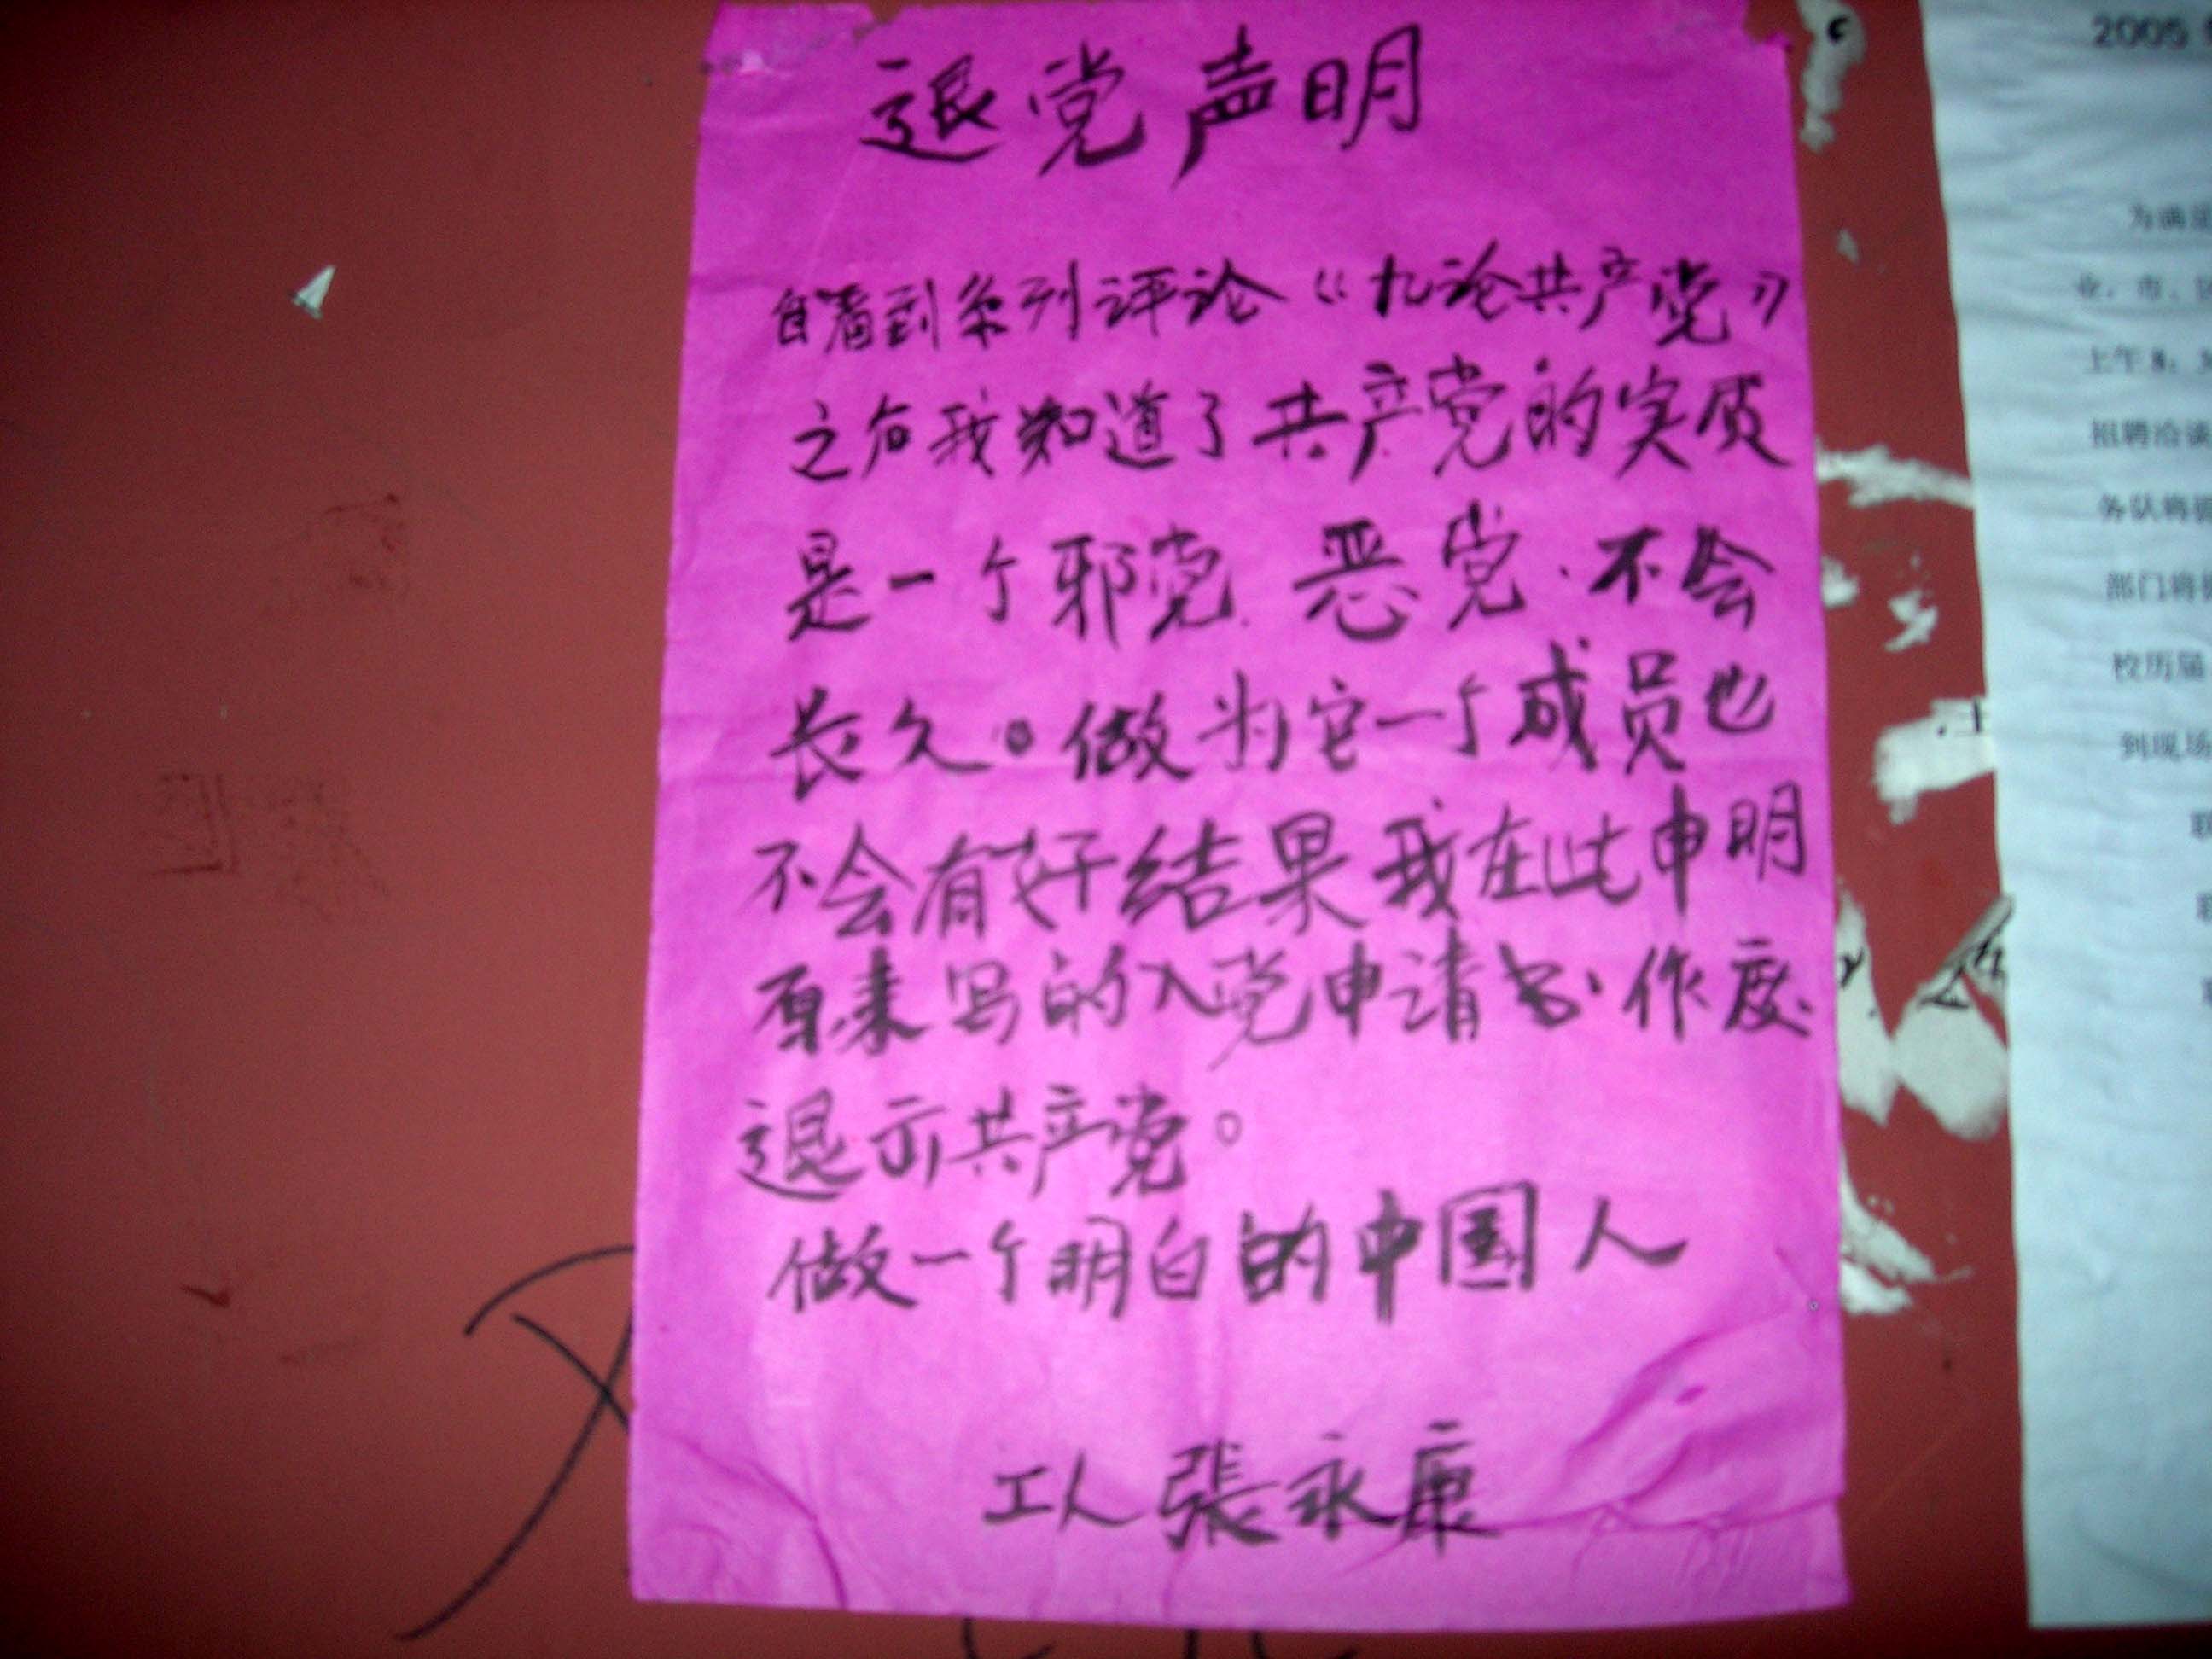 退党声明
自看到系列评论《九论共产党》
之后我知道了共产党的实质
是一个邪党.恶党.不会
长久。做为它一个成员也
不会有好结果我在此申明
原来写的入党申请书.作废.
退示共产党。
做一个明白的中国人
工人 張永康
2005
为满足
业,市、
上午8:3
招聘洽谈
务队将
部门将
校历届
到现场